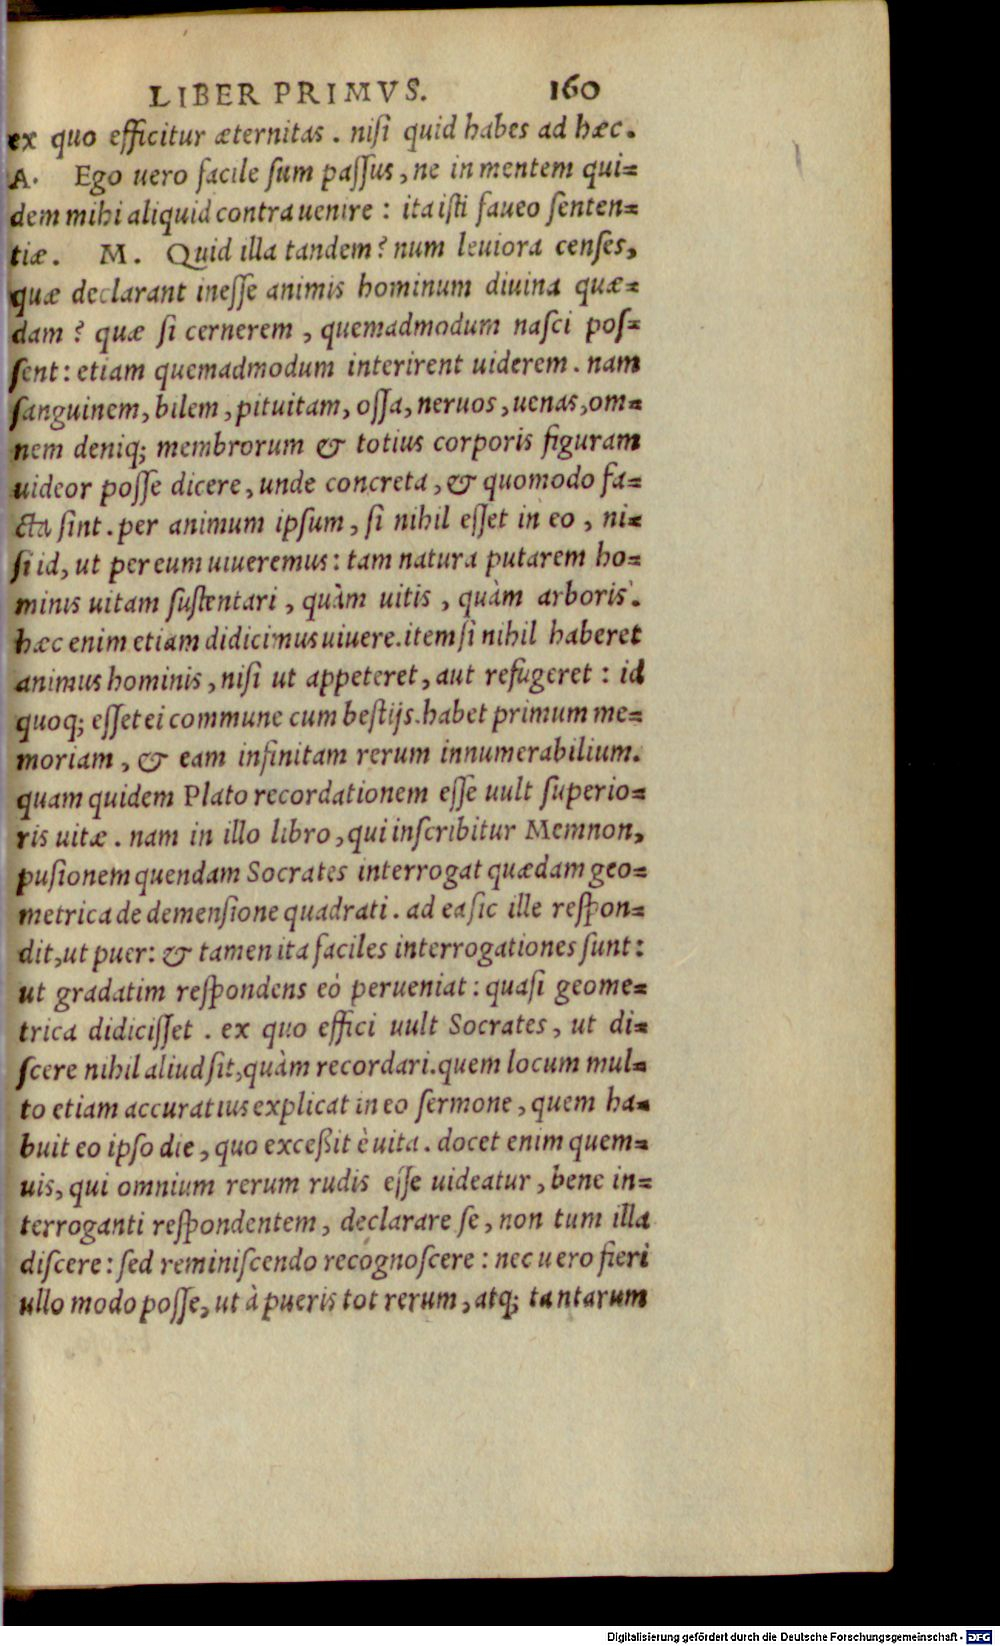 LIBER PRIMVS. 160
ex quo efficitur æternitas. nisi quid habes ad hæc.
A. Ego uero facile sum passus, ne in mentem qui-
dem mihi aliquid contra uenire: ita isti faueo senten-
tiæ. M. Quid illa tandem? num leuiora censes,
quæ declarant inesse animis hominum diuina quæ-
dam? quæ si cernerem, quemadmodum nasci pos-
sent: etiam quemadmodum interirent uiderem. nam
sanguinem, bilem, pituitam, ossa, neruos, uenas, om-
nem deniq; membrorum & totius corporis figuram
uideor posse dicere, unde concreta, & quomodo fa-
cta sint. per animum ipsum, si nihil esset in eo, ni-
si id, ut per eum uiueremus: tam natura putarem ho-
minis uitam sustentari, quàm uitis, quàm arboris.
hæc enim etiam didicimus uiuere. item si nihil haberet
animus hominis, nisi ut appeteret, aut refugeret: id
quoq; esset ei commune cum bestijs. habet primum me-
moriam, & eam infinitam rerum innumerabilium.
quam quidem Plato recordationem esse uult superio-
ris uitæ. nam in illo libro, qui inscribitur Memnon,
pusionem quendam Socrates interrogat quædam geo-
metrica de demensione quadrati. ad ea sic ille respon-
dit, ut puer: & tamen ita faciles interrogationes sunt:
ut gradatim respondens eò perueniat: quasi geome-
trica didicisset. ex quo effici uult Socrates, ut di-
scere nihil aliud sit, quàm recordari. quem locum mul-
to etiam accuratius explicat in eo sermone, quem ha-
buit eo ipso die, quo exceßit è uita. docet enim quem-
uis, qui omnium rerum rudis esse uideatur, bene in-
terroganti respondentem, declarare se, non tum illa
discere: sed reminiscendo recognoscere: nec uero fieri
ullo modo posse, ut à pueris tot rerum, atq; tantarum
Digitalisierung gefördert durch die Deutsche Forschungsgemeinschaft - DFG